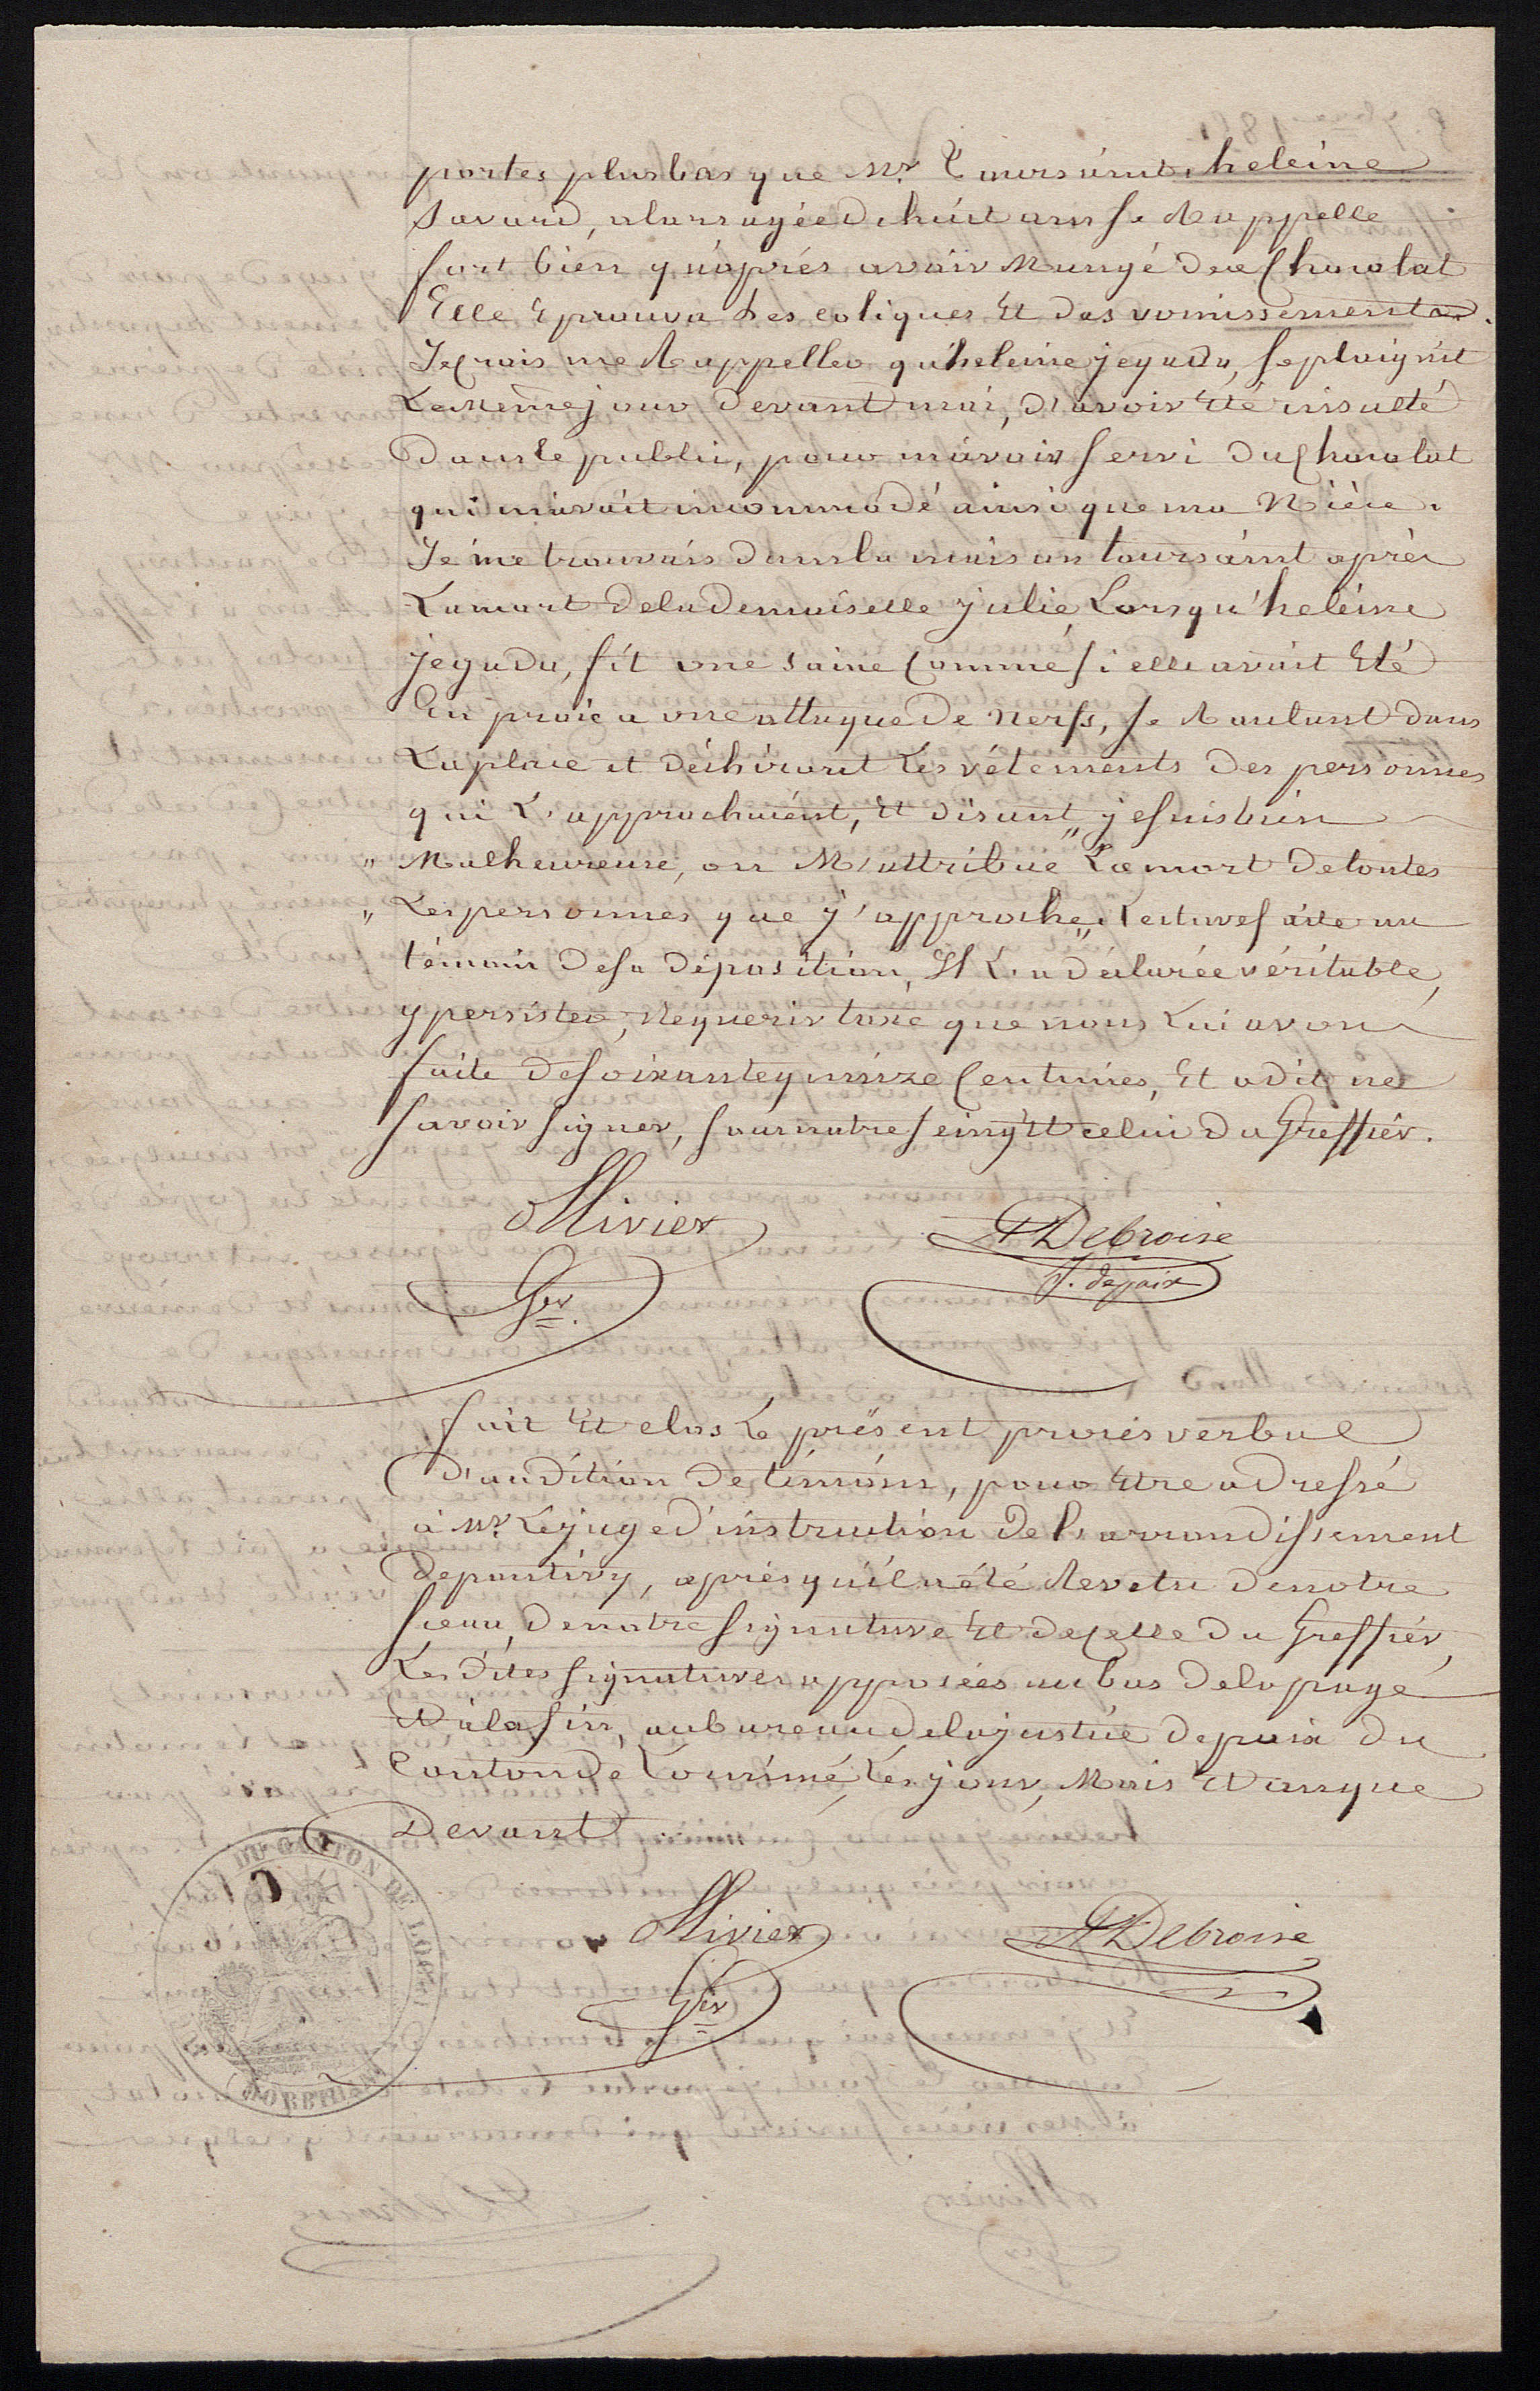 portes plus bas que Mr. Toursaint. heleine
Savard, alors agée de huit ans se Rappelle
fort bien qu'après avoir Mangé de ce Chocolat
Elle Eprouva des coliques Et des vomissements.
Je Crois me Rappeller qu'heleine jegado, se plaignit
Le Même jour devant moi, d'avoir Eté insulté
dans le public, pour m'avoir servi du Chocolat
qui m'avait incommodé ainsi que ma Nièce.
Je me trouvais dans la maison toursaint après
La mort de la demoiselle julie, Lorsqu'heleine
jegado, fit une saine Comme si elle avait Eté
En proie a une attaque de Nerfs, se Roulant dans
La place et déchirant Les vétements des personnes
qui L'approchaient, Et disant " je suis bien
" Malheureuse, on M'attribue La mort de toutes
" Les personnes que j'approche " Lecture faite au
témoin de sa déposition, Il L'a déclarée véritable,
y persister, Requerir taxe que nous Lui avons
faite de soixante quinze Centimes, Et a dit ne
savoir signer, sous notre seing Et celui du Greffier.
Ollivier
Debroise
Ger.
J. de paix
fait Et clos Le présent procès verbal
d'audition de témoins, pour Etre adressé
à Mr. Le juge d'instruction de l'arrondissement
de pontivy, après qu'il a été Revetu de notre
sceau, de notre signature Et de Celle du Greffier,
Les dites signatures apposées au bas de la page
Et à la fin, au bureau de la justice de paix du
Canton de Locminé, Les jour, Mois Et an que
Devant.
DU CANTON DE LOCMINÉ
MORBIHAN
Ollivier
Debroise
Ger